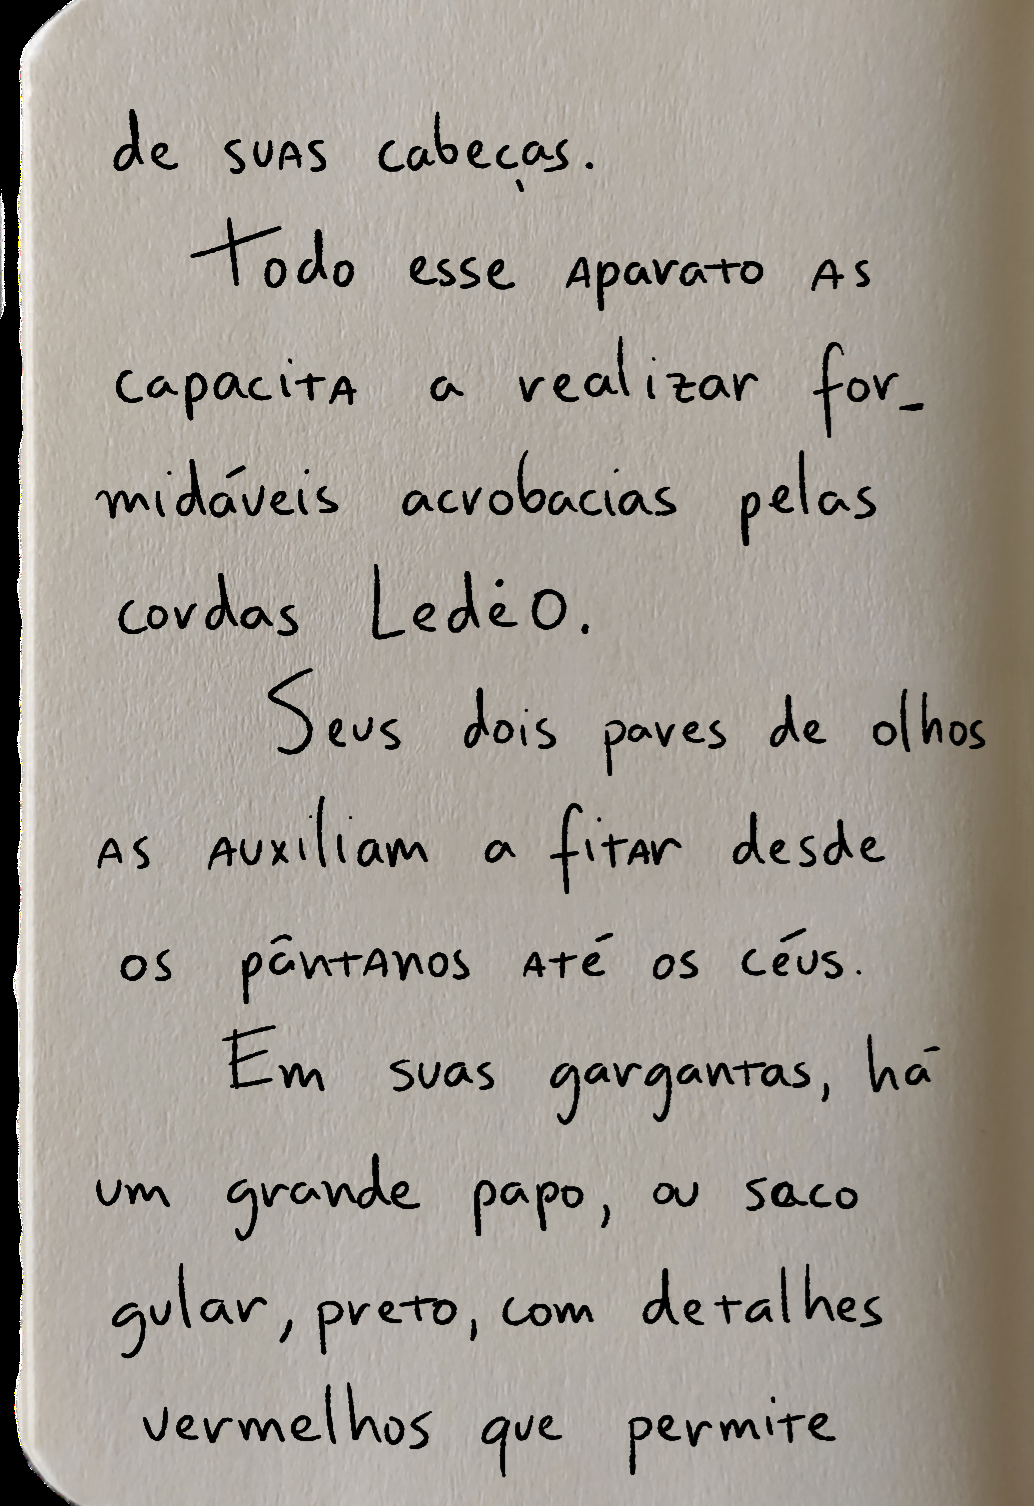 de suas cabeças.
Todo esse aparato as
capacita a realizar for_
midáveis acrobacias pelas
cordas Ledėo.
Seus dois pares de olhos
as auxiliam a fitar desde
os pântanos até os céus.
Em suas gargantas, há
um grande papo, ou saco
gular, preto, com detalhes
vermelhos que permite